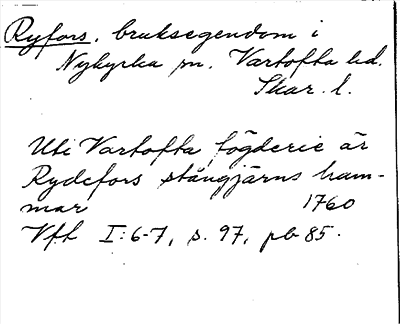 Ryfors. bruksegendom i
Nykyrka sn. Vartofta hd.
Skar. l.
Uti Vartofta fögderie är
Rydefors stångjärns ham-
mar 1760
Vfh I:6-7, s. 97, pb 85.